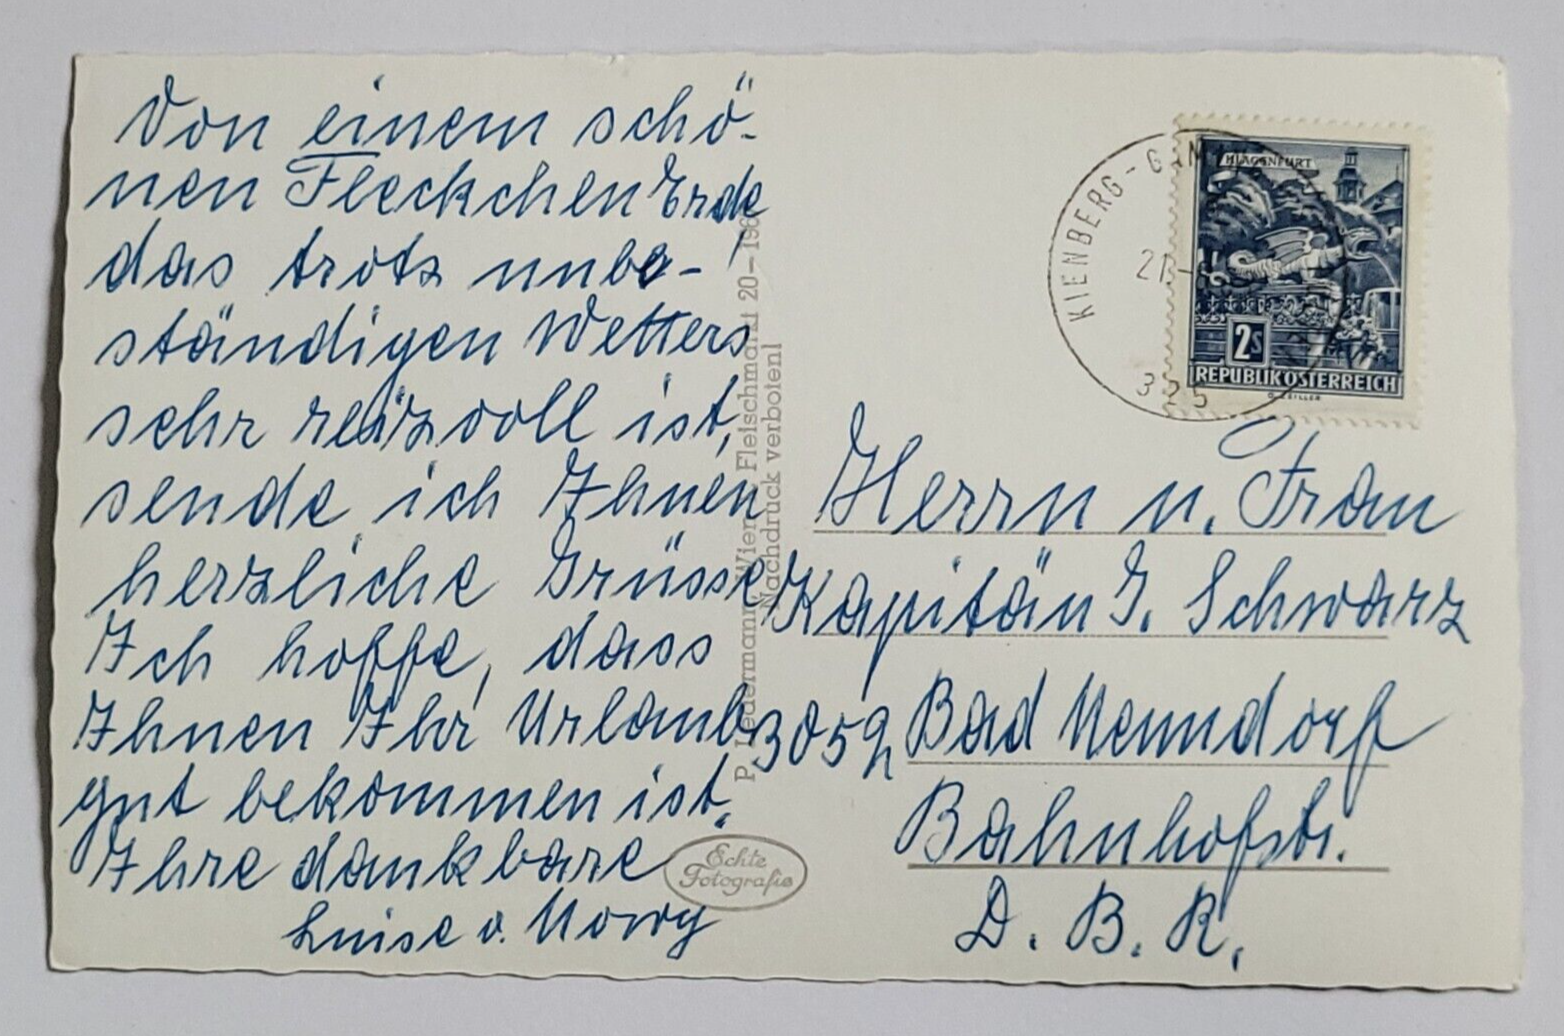 Von einem schö-
nen Fleckchen Erde
das trotz unbe-
ständigen Wetters
sehr reizvoll ist,
sende ich Ihnen
herzliche Grüsse
Ich hoffe, dass
Ihnen Ihr Urlaub
gut bekommen ist.
Ihre dankbare
Luise v. Nowy
P. Ledermann, Wien Fleischmarkt 20 – 196
Nachdruck verboten!
Echte
Fotografie
KIENBERG-GAM
KLAGENFURT
2S
REPUBLIK ÖSTERREICH
Herrn u. Frau
Kapitän J. Schwarz
3052 Bad Nenndorf
Bahnhofstr.
D. B. R.